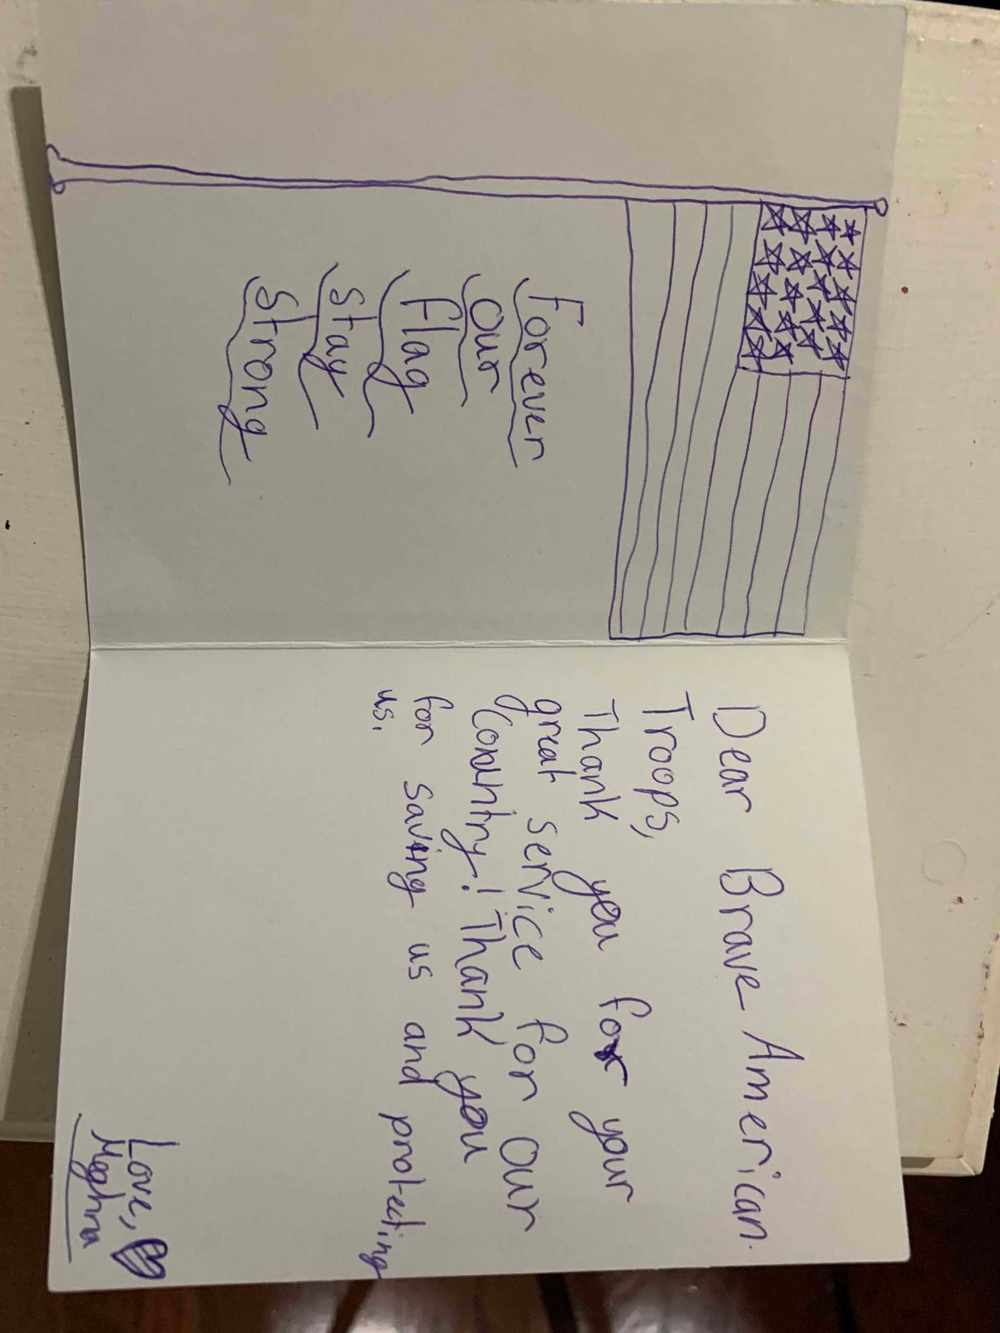 Forever
our
Flag
Stay
Strong
Dear Brave American
Troops,
Thank you for your
great service for our
country! Thank you
for saving us and protecting
us.
Love,
Meghna